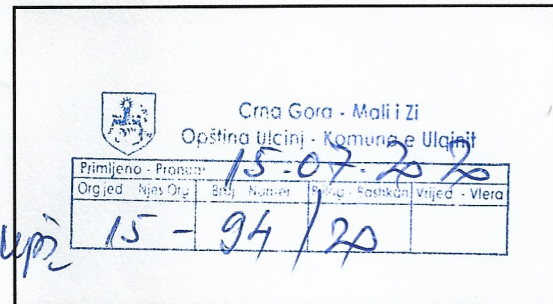 Crna Gora - Mali i Zi
Opština Ulcinj - Komuna e Ulqinit
Primljeno - Pranuar 15-07-2020
Org jed Njes Org Broj - Numer Prilog - Bashkan Vrijed - Vlera
15 - 94/20